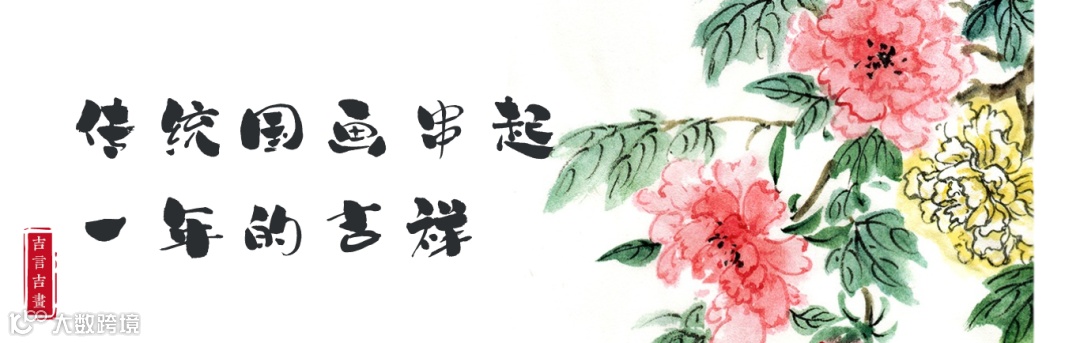 传统国画串起
一年的吉祥
吉言吉畫
大数跨境